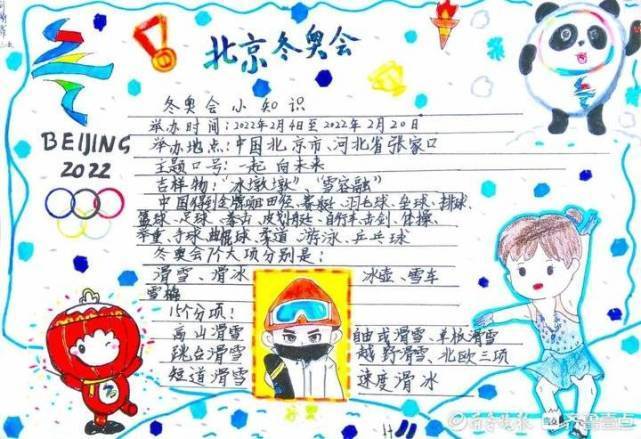 北京冬奥会
冬奥会小知识
BEIJING
2022
举办时间:2022年2月4日至2022年2月20日
举办地点:中国北京市、河北省张家口
主题口号:一起向未来
吉祥物:"冰墩墩"、"雪容融"
中国得到金牌 田径、赛艇、羽毛球、垒球、排球、
篮球、足球、拳击、皮划艇、自行车、击剑、体操、
举重、手球、曲棍球、柔道、游泳、乒乓球
冬奥会7个大项分别是:
滑雪、滑冰 冰壶、雪车
雪橇
15个分项:
高山滑雪 自由式滑雪、单板滑雪
跳台滑雪 越野滑雪、北欧三项
短道滑雪 速度滑冰